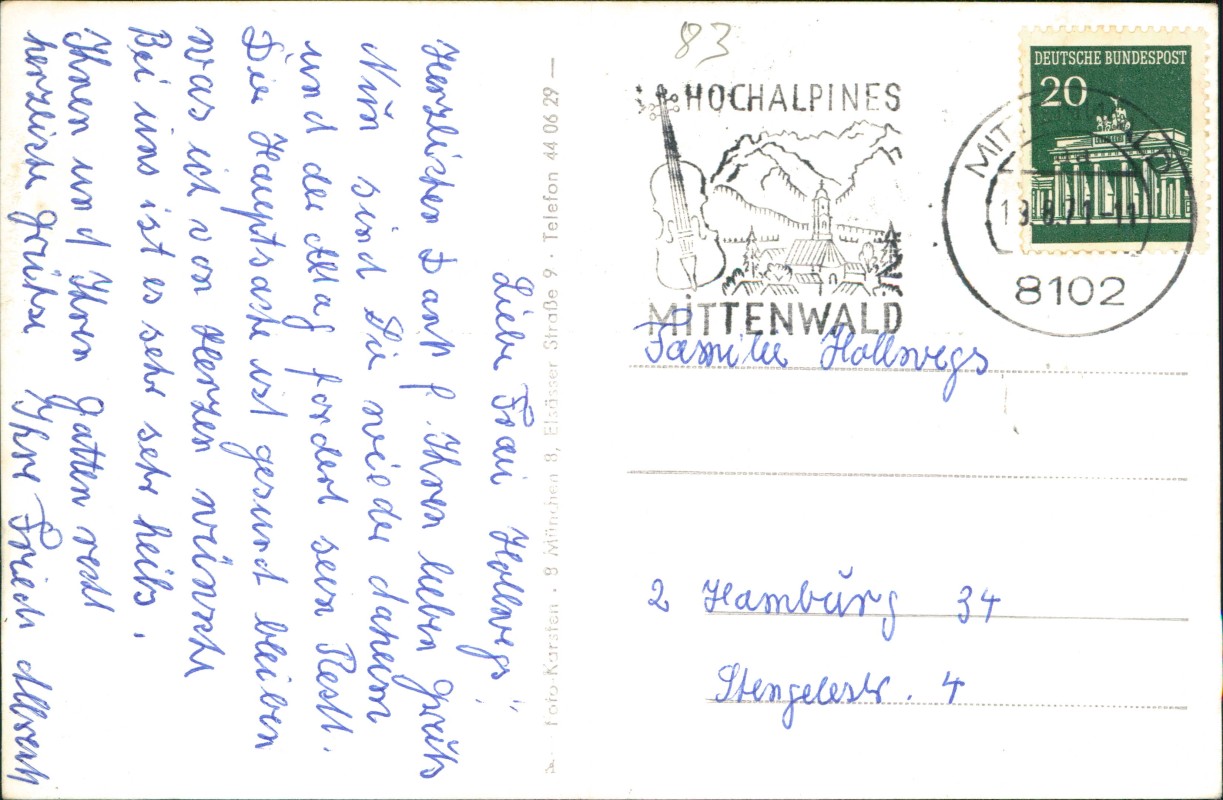 Liebe Frau Hollwegs!
Herzlichen Dank f. Ihren lieben Gruß
Nun sind Sie wieder daheim
und der Alltag fordert sein Recht.
Die Hauptsache ist gesund bleiben
was ich von Herzen wünsche
Bei uns ist es sehr heiß.
Ihnen und Ihren Gatten recht
herzliche Grüße Ihre Friedl Albrecht
foto-Karsten · 8 München 8, Elsässer Straße 9 · Telefon 44 06 29 —
83
HOCHALPINES
MITTENWALD
DEUTSCHE BUNDESPOST
20
MITTENWALD
19.8.71-11
8102
Familie Hollwegs
2 Hamburg 34
Stengelestr. 4